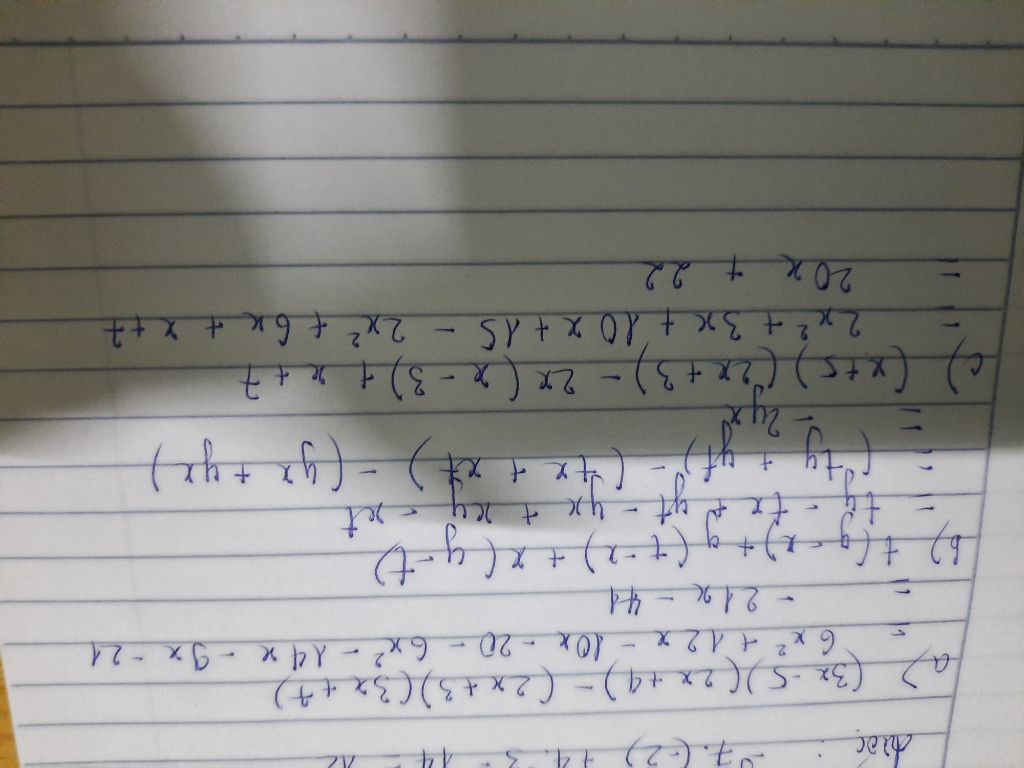 -7.(-2) + 4.3 - 14 = 12
a) (3x-5)(2x+4) - (2x+3)(3x+7)
= 6x² + 12x - 10x - 20 - 6x² - 14x - 9x - 21
= - 21x - 41
b) t(y-x) + y(t-x) + x(y-t)
= ty - tx + yt - yx + xy - xt
= (ty + yt) - (tx + xt) - (yx + yx)
= - 2yx
c) (x+5)(2x+3) - 2x(x-3) + x + 7
= 2x² + 3x + 10x + 15 - 2x² + 6x + x + 7
= 20x + 22